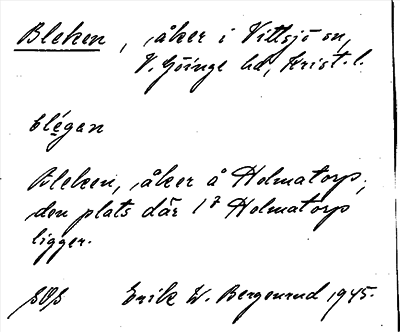 Bleken, åker i Vittsjö sn,
V. Göinge hd, Krist. l.
blégan
Bleken, åker å Holmatorp,
den plats där 1 2 Holmatorp
ligger.
Erik W. Bergenrud 1945.